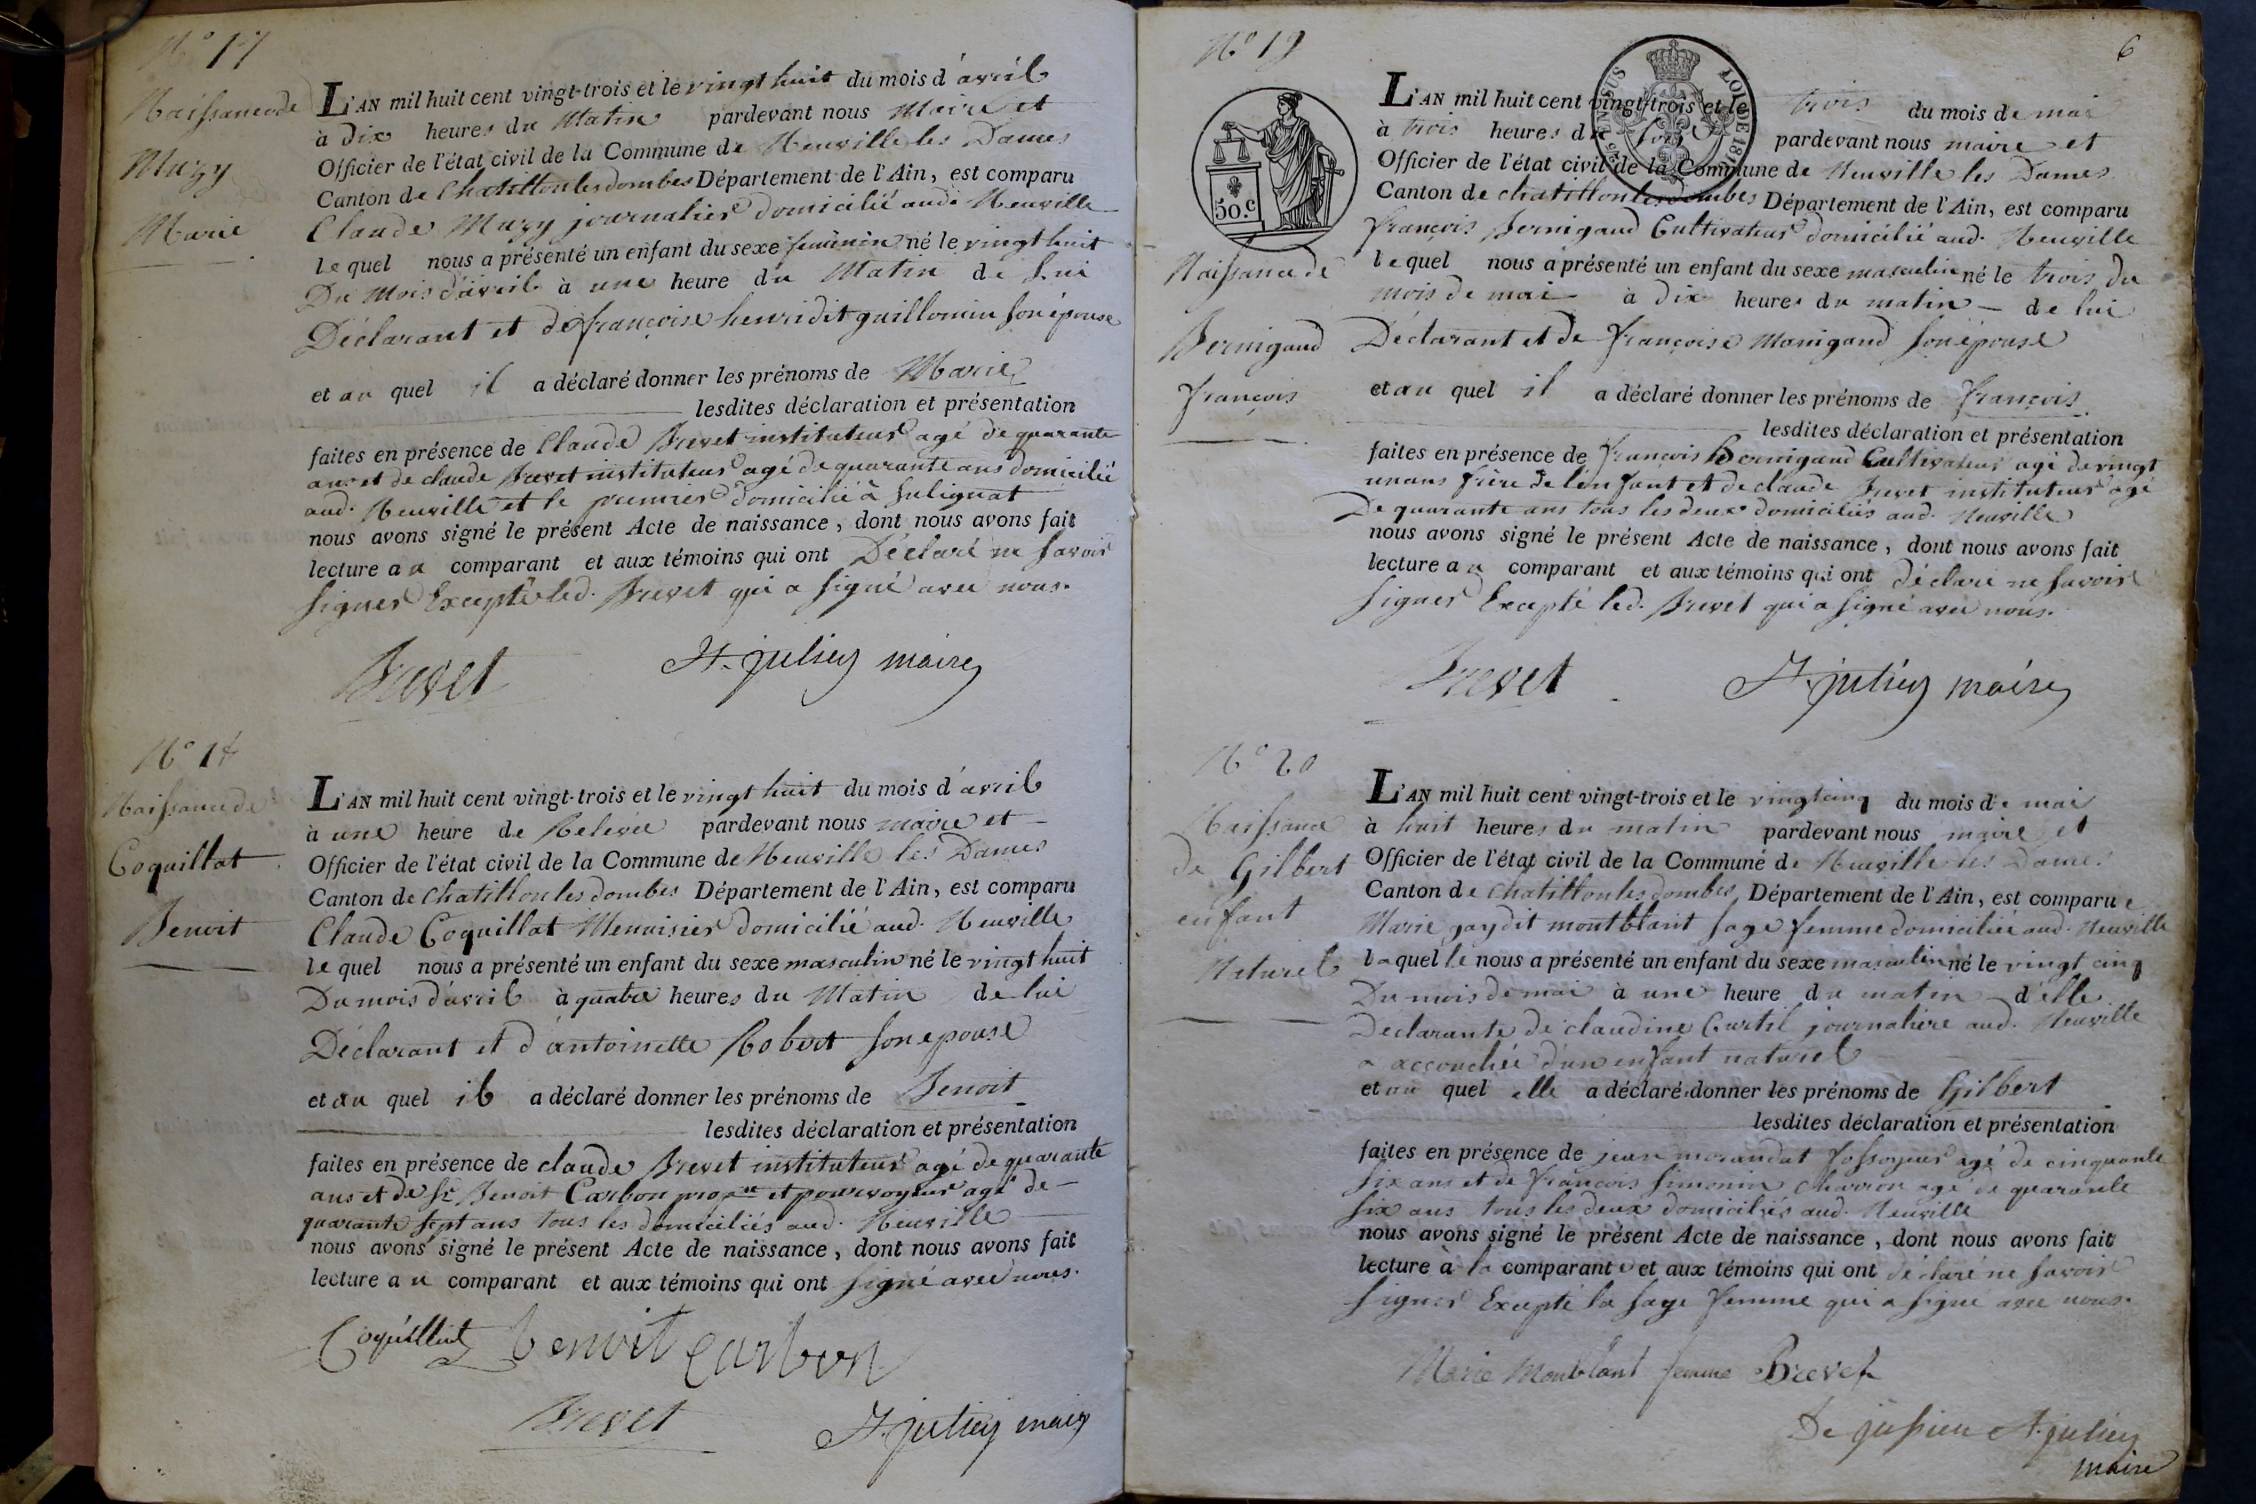 N° 17
Naissance de
Muzy
Marie
L'AN mil huit cent vingt-trois et le vingt huit du mois d'avril
à Dix heures du Matin pardevant nous Maire et
Officier de l'état civil de la Commune de Neuville les Dames
Canton de Chatillon les dombes Département de l'Ain, est comparu
Claude Muzy journalier domicilié aud. Neuville
lequel nous a présenté un enfant du sexe feminin né le vingt huit
Du Mois d'avril à une heure du Matin de Lui
Déclarant et de françoise henri dit guillomin son épouse
et au quel il a déclaré donner les prénoms de Marie
lesdites déclaration et présentation
faites en présence de Claude Brevet instituteur agé de quarante
ans et de claude Brevet instituteur agé de quarante ans domicilié
aud. Neuville et le premier domicilié à Sulignat
nous avons signé le présent Acte de naissance, dont nous avons fait
lecture au comparant et aux témoins qui ont Déclaré ne savoir
signer Excepté led. Brevet qui a signé avec nous.
Brevet St. julien maire
N° 18
Naissance de
Coquillat
Benoit
L'AN mil huit cent vingt-trois et le vingt huit du mois d'avril
à une heure de Relevée pardevant nous maire et
Officier de l'état civil de la Commune de Neuville les Dames
Canton de Chatillon les dombes Département de l'Ain, est comparu
Claude Coquillat Menuisier domicilié aud. Neuville
lequel nous a présenté un enfant du sexe masculin né le vingt huit
Du mois d'avril à quatre heures du Matin de lui
Déclarant et d'antoinette Robert son epouse
et au quel il a déclaré donner les prénoms de Benoit
lesdites déclaration et présentation
faites en présence de claude Brevet instituteur agé de quarante
ans et de Sr. Benoit Carbon propre et pourvoyeur agé de
quarante sept ans tous les domiciliés aud. Neuville
nous avons signé le présent Acte de naissance, dont nous avons fait
lecture au comparant et aux témoins qui ont signé avec nous.
Coquillat benoit Carbon
Brevet St. julien maire
6
N° 19
50. c
LOI DE
Naissance de
Bernigaud
françois
L'AN mil huit cent vingt-trois et le trois du mois de mai
à trois heures du soir pardevant nous maire et
Officier de l'état civil de la Commune de Neuville les Dames
Canton de chatillon les dombes Département de l'Ain, est comparu
françois Bernigaud Cultivateur domicilié aud. Neuville
lequel nous a présenté un enfant du sexe masculin né le trois du
mois de mai à dix heures du matin de lui
Déclarant et de françoise Manigand son épouse
et au quel il a déclaré donner les prénoms de françois
lesdites déclaration et présentation
faites en présence de françois Bernigaud Cultivateur agé de vingt
un ans frère de l'enfant et de claude Brevet instituteur agé
De quarante ans tous les deux domiciliés aud. Neuville
nous avons signé le présent Acte de naissance, dont nous avons fait
lecture au comparant et aux témoins qui ont déclaré ne savoir
signer Excepté led. Brevet qui a signé avec nous.
Brevet St. julien maire
N° 20
Naissance
de Gilbert
enfant
Naturel
L'AN mil huit cent vingt-trois et le vingt cinq du mois de mai
à huit heures du matin pardevant nous maire et
Officier de l'état civil de la Commune de Neuville les Dames
Canton de Chatillon les dombes Département de l'Ain, est comparue
Marie gay dit montblant sage femme domiciliée aud. Neuville
laquelle nous a présenté un enfant du sexe masculin né le vingt cinq
Du mois de mai à une heure du matin d'elle
Déclarante de claudine Curtil journaliere aud. Neuville
a accouchée d'un enfant naturel
et au quel elle a déclaré donner les prénoms de Gilbert
lesdites déclaration et présentation
faites en présence de jean morandat fossoyeur agé de cinquante
six ans et de francois Simonin Charron agé de quarante
six ans tous les deux domiciliés aud. Neuville
nous avons signé le présent Acte de naissance, dont nous avons fait
lecture à la comparante et aux témoins qui ont déclaré ne savoir
signer Excepté la sage femme qui a signé avec nous.
Marie Montblant femme Brevet
De jussieu St. julien
maire